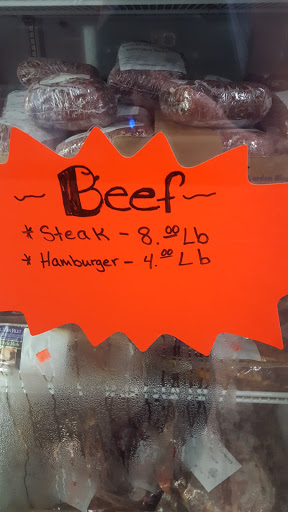 ~ Beef ~
* Steak - 8.00 Lb
* Hamburger - 4.00 Lb